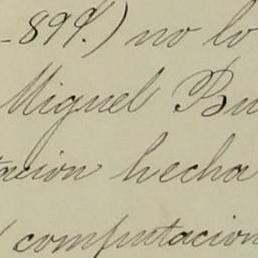 -899.) no lo
Miguel Bu
tacion hecha
computacion